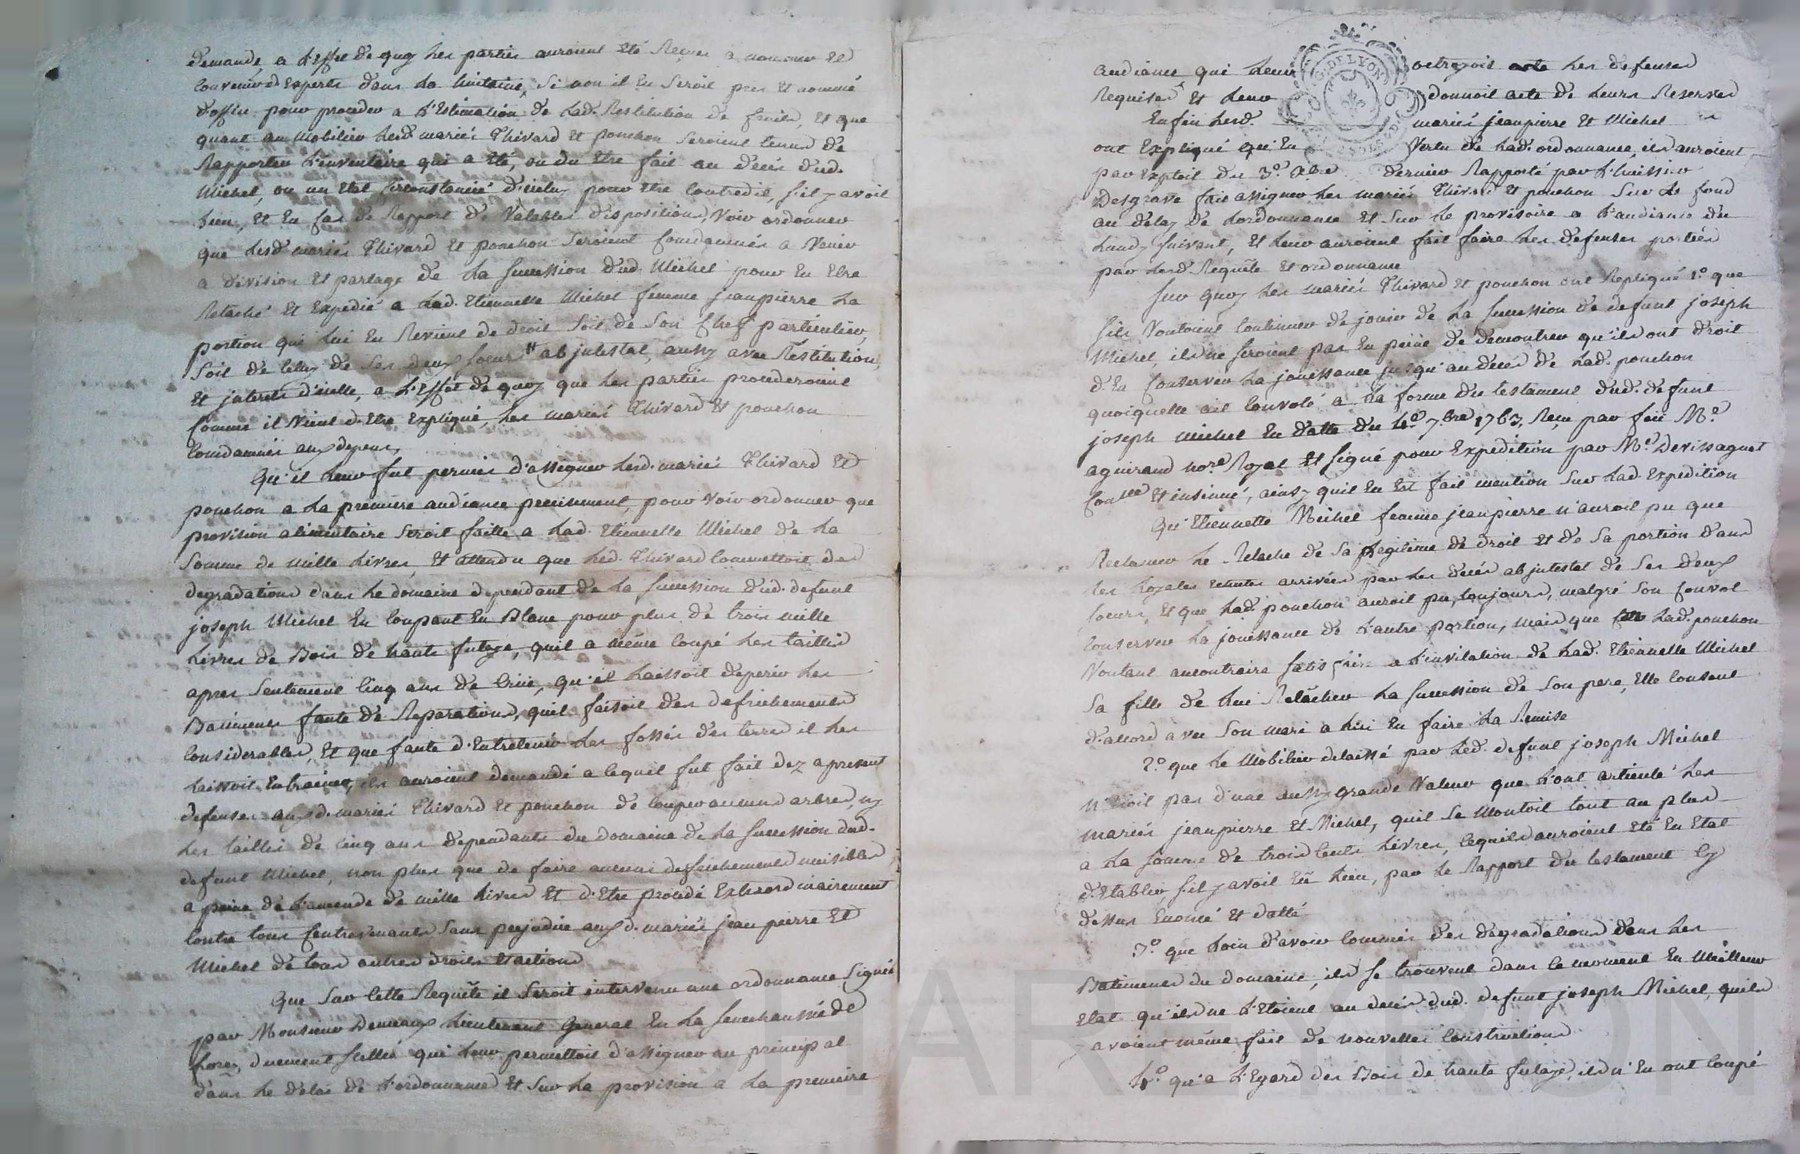 demande a l'effet de quoy les parties auroient été Reçues a nommer et
convenir d'experts dans la huitaine, Si non il en Seroit pris et nommé
d'office pour proceder a l'Estimation de lad. Restitution de fruits, et que
quant au mobilier lesd. mariés Thivard et ponchon Seroient tenus de
Rapporter l'inventaire qui a été, ou du etre fait au décès dud.
Michel, ou un etat circonstancié d'icelui pour etre contredit, s'il y avoit
lieu, et en cas de Rapport de Valables dispositions, Voir ordonner
que lesd. mariés Thivard et ponchon Seroient condamnés a Venir
a division et partage de la succession dud. Michel pour en etre
Relaché et Expedié a lad. Etiennette Michel femme jeanpierre la
portion qui lui en Revient de droit Soit de Son chef particulier,
Soit de celui de Ses deux soeurs ab jntestat, aussy avec Restitution
et jnterets d'icelle, a l'Effet de quoy que les parties procederoient
comme il Vient d'Etre Expliqué, les mariés Thivard et ponchon
Condamnés aux depens,
Qu'il leur fut permis d'assigner lesd. mariés Thivard et
ponchon a la premiere audiance precisement, pour voir ordonner que
provision alimentaire Seroit faitte a lad. Etiennette Michel de la
Somme de mille livres, et attendu que led. Thivard Commettoit des
degradations dans le domaine dependant de la succession dud. defunt
joseph Michel En coupant En Blanc pour plus de trois mille
livres de Bois de haute futaye, quil a même coupé les taillis
apres Seulement cinq ans de Crüe, qu'il laissoit deperir les
Batiments faute de Reparations, quil faisoit des defrichements
Considerables, et que faute d'Entretenir les fossés des terres il les
laissoit Entrainer, ils auroient demandé a cequil fut fait dez apresent
defenses auxd. mariés Thivard et ponchon de couper aucuns arbres, ny
les taillis de cinq ans dependants du domaine de la succession dud.
defunt Michel, non plus que de faire aucuns deffrichements nuisibles
a peine de l'amende de mille livres et d'Etre procedé Extraordinairement
contre tous contrevenants Sans prejudice auxd. mariés jean pierre et
Michel de tous autres droits et actions
Que Sur Cette Requête il Seroit intervenu une ordonnance Signée
par Monsieur Demeaux Lieutenant General En la Senechaussée de
forez, duement Scellée qui leur permettoit d'assigner au principal
dans le delai de l'ordonnance et Sur la provision a la premiere
audiance qui leur octroyoit acte les defenses
Requises et leur donnoit acte de leurs Reserves
G. DE LYON
Enfin lesd. mariés jeanpierre et Michel
ont Expliqué qu'En Vertu de lad. ordonnance, ils auroient
par Exploit du 3e. Xbre dernier Rapporté par l'huissier
Desgrave fait assigner les mariés Thivard et ponchon Sur le fond
au delay de l'ordonnance et Sur le provisoire a l'audiance du
lundy Suivant, et leur auroient fait faire les defenses portées
par lesd. Requête et ordonnance
Sur quoy les mariés Thivard et ponchon ont Repliqué 1.º que
S'ils Vouloient Continuer de jouir de la succession de defunt joseph
Michel, ils ne seroient pas En peine de demontrer qu'ils ont droit
d'En conserver la jouissance jusqu'au deces de lad. ponchon
quoiquelle ait Convolé a la forme du testament dud. defunt
joseph Michel En datte du 4e. 7bre 1763, Reçu par feu Me.
aguiraud nore. Royal et signé pour Expedition par Me. Devissaguet
et insinué, ainsy quil en Est fait mention Sur lad. Expedition
Qu'Etiennette Michel femme jeanpierre n'auroit pu que
Reclamer le Relache de Sa legitime de droit et de Sa portion dans
les hoyries echutes arrivées par les decés ab jntestat de Ses deux
soeurs, et que lad. ponchon auroit pu toujours, malgré Son convol
Conserver la jouissance de l'autre portion, mais que lad. ponchon
Voulant aucontraire satisfaire a l'invitation de lad. Etiennette Michel
Sa fille de lui Relâcher la succession de Son pere, Elle Consent
d'accord avec Son mari a lui en faire la Remise
2.º que le Mobilier delaissé par led. defunt joseph Michel
n'Etoit pas d'une aussy grande Valeur que l'ont articulé les
mariés jeanpierre et Michel, quil se Montoit tout au plus
a la somme de trois Cents livres, cequils auroient été En Etat
d'Etablir s'il y avoit Eü lieu, par le Rapport du testament Cy
dessus Enoncé et datté
3.º que loin d'avoir Commis des degradations dans les
Batiments du domaine, ils se trouvent dans le moment En Meilleur
Etat qu'ils ne l'Etoient au decés dud. defunt joseph Michel, quils
y avoient même fait de nouvelles Constructions
4.º qu'a l'Egard des Bois de haute futaye, ils n'En ont coupé
CHAREYRON